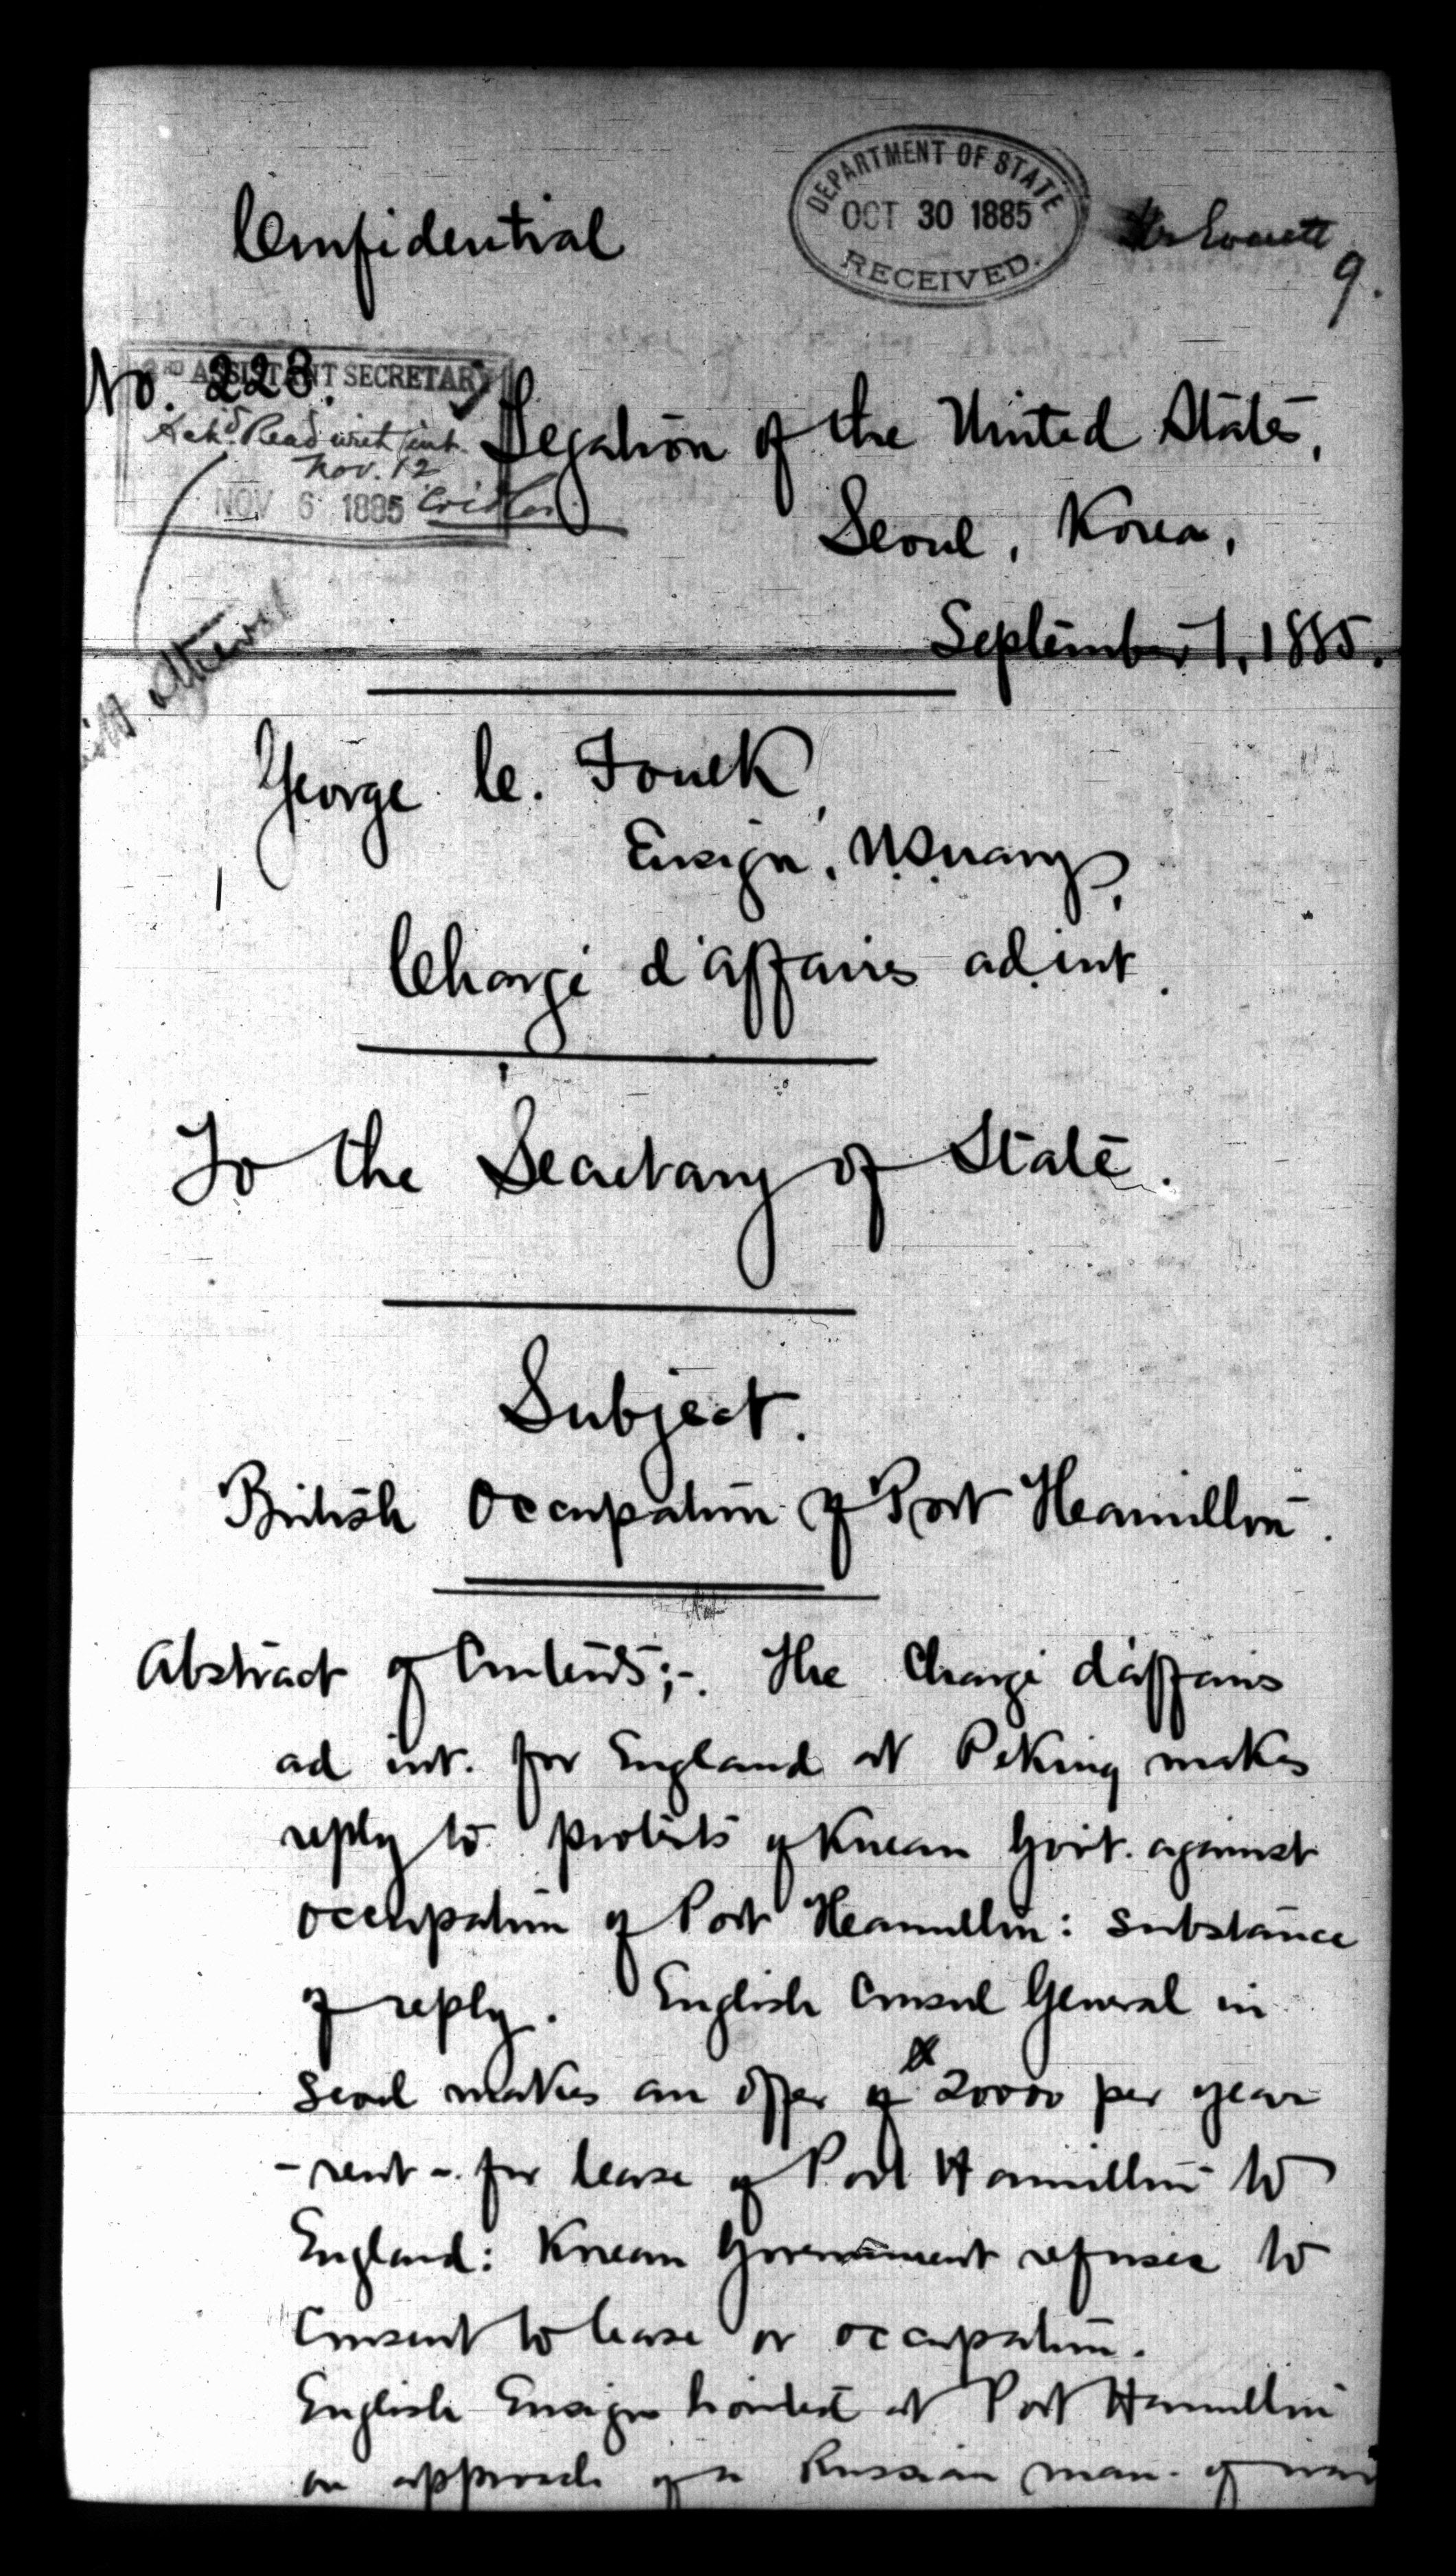 Confidential
DEPARTMENT OF STATE
OCT 30 1885
RECEIVED.
9.
No. 223.
3RD ASSISTANT SECRETARY
Nov. 12
NOV 6 1885
Legation of the United States,
Seoul, Korea,
September 1, 1885.
George C. Foulk,
Ensign, U.S. Navy,
Chargé d'affaires ad. int.
To the Secretary of State.
Subject.
British Occupation of Port Hamilton.
Abstract of Contents;-. The Chargé d'affaires
ad int. for England at Peking makes
reply to protests of Korean Govt. against
occupation of Port Hamilton: substance
of reply. English Consul General in
Seoul makes an offer of 20000 per year
- rent -. for lease of Port Hamilton to
England: Korean Government refuses to
consent to lease or occupation.
English Ensign hoisted at Port Hamilton
on approach of a Russian man-of war